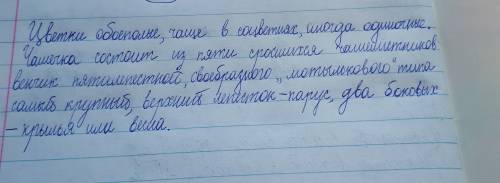 Цветки обоеполые, чаще в соцветиях, иногда одиночные.
Чашечка состоит из пяти сросшихся чашелистников
венчик пятилепестной, своебразного „мотылькового" типа
самый крупный, верхний лепесток-парус, два боковых
- крылья или вёсла.